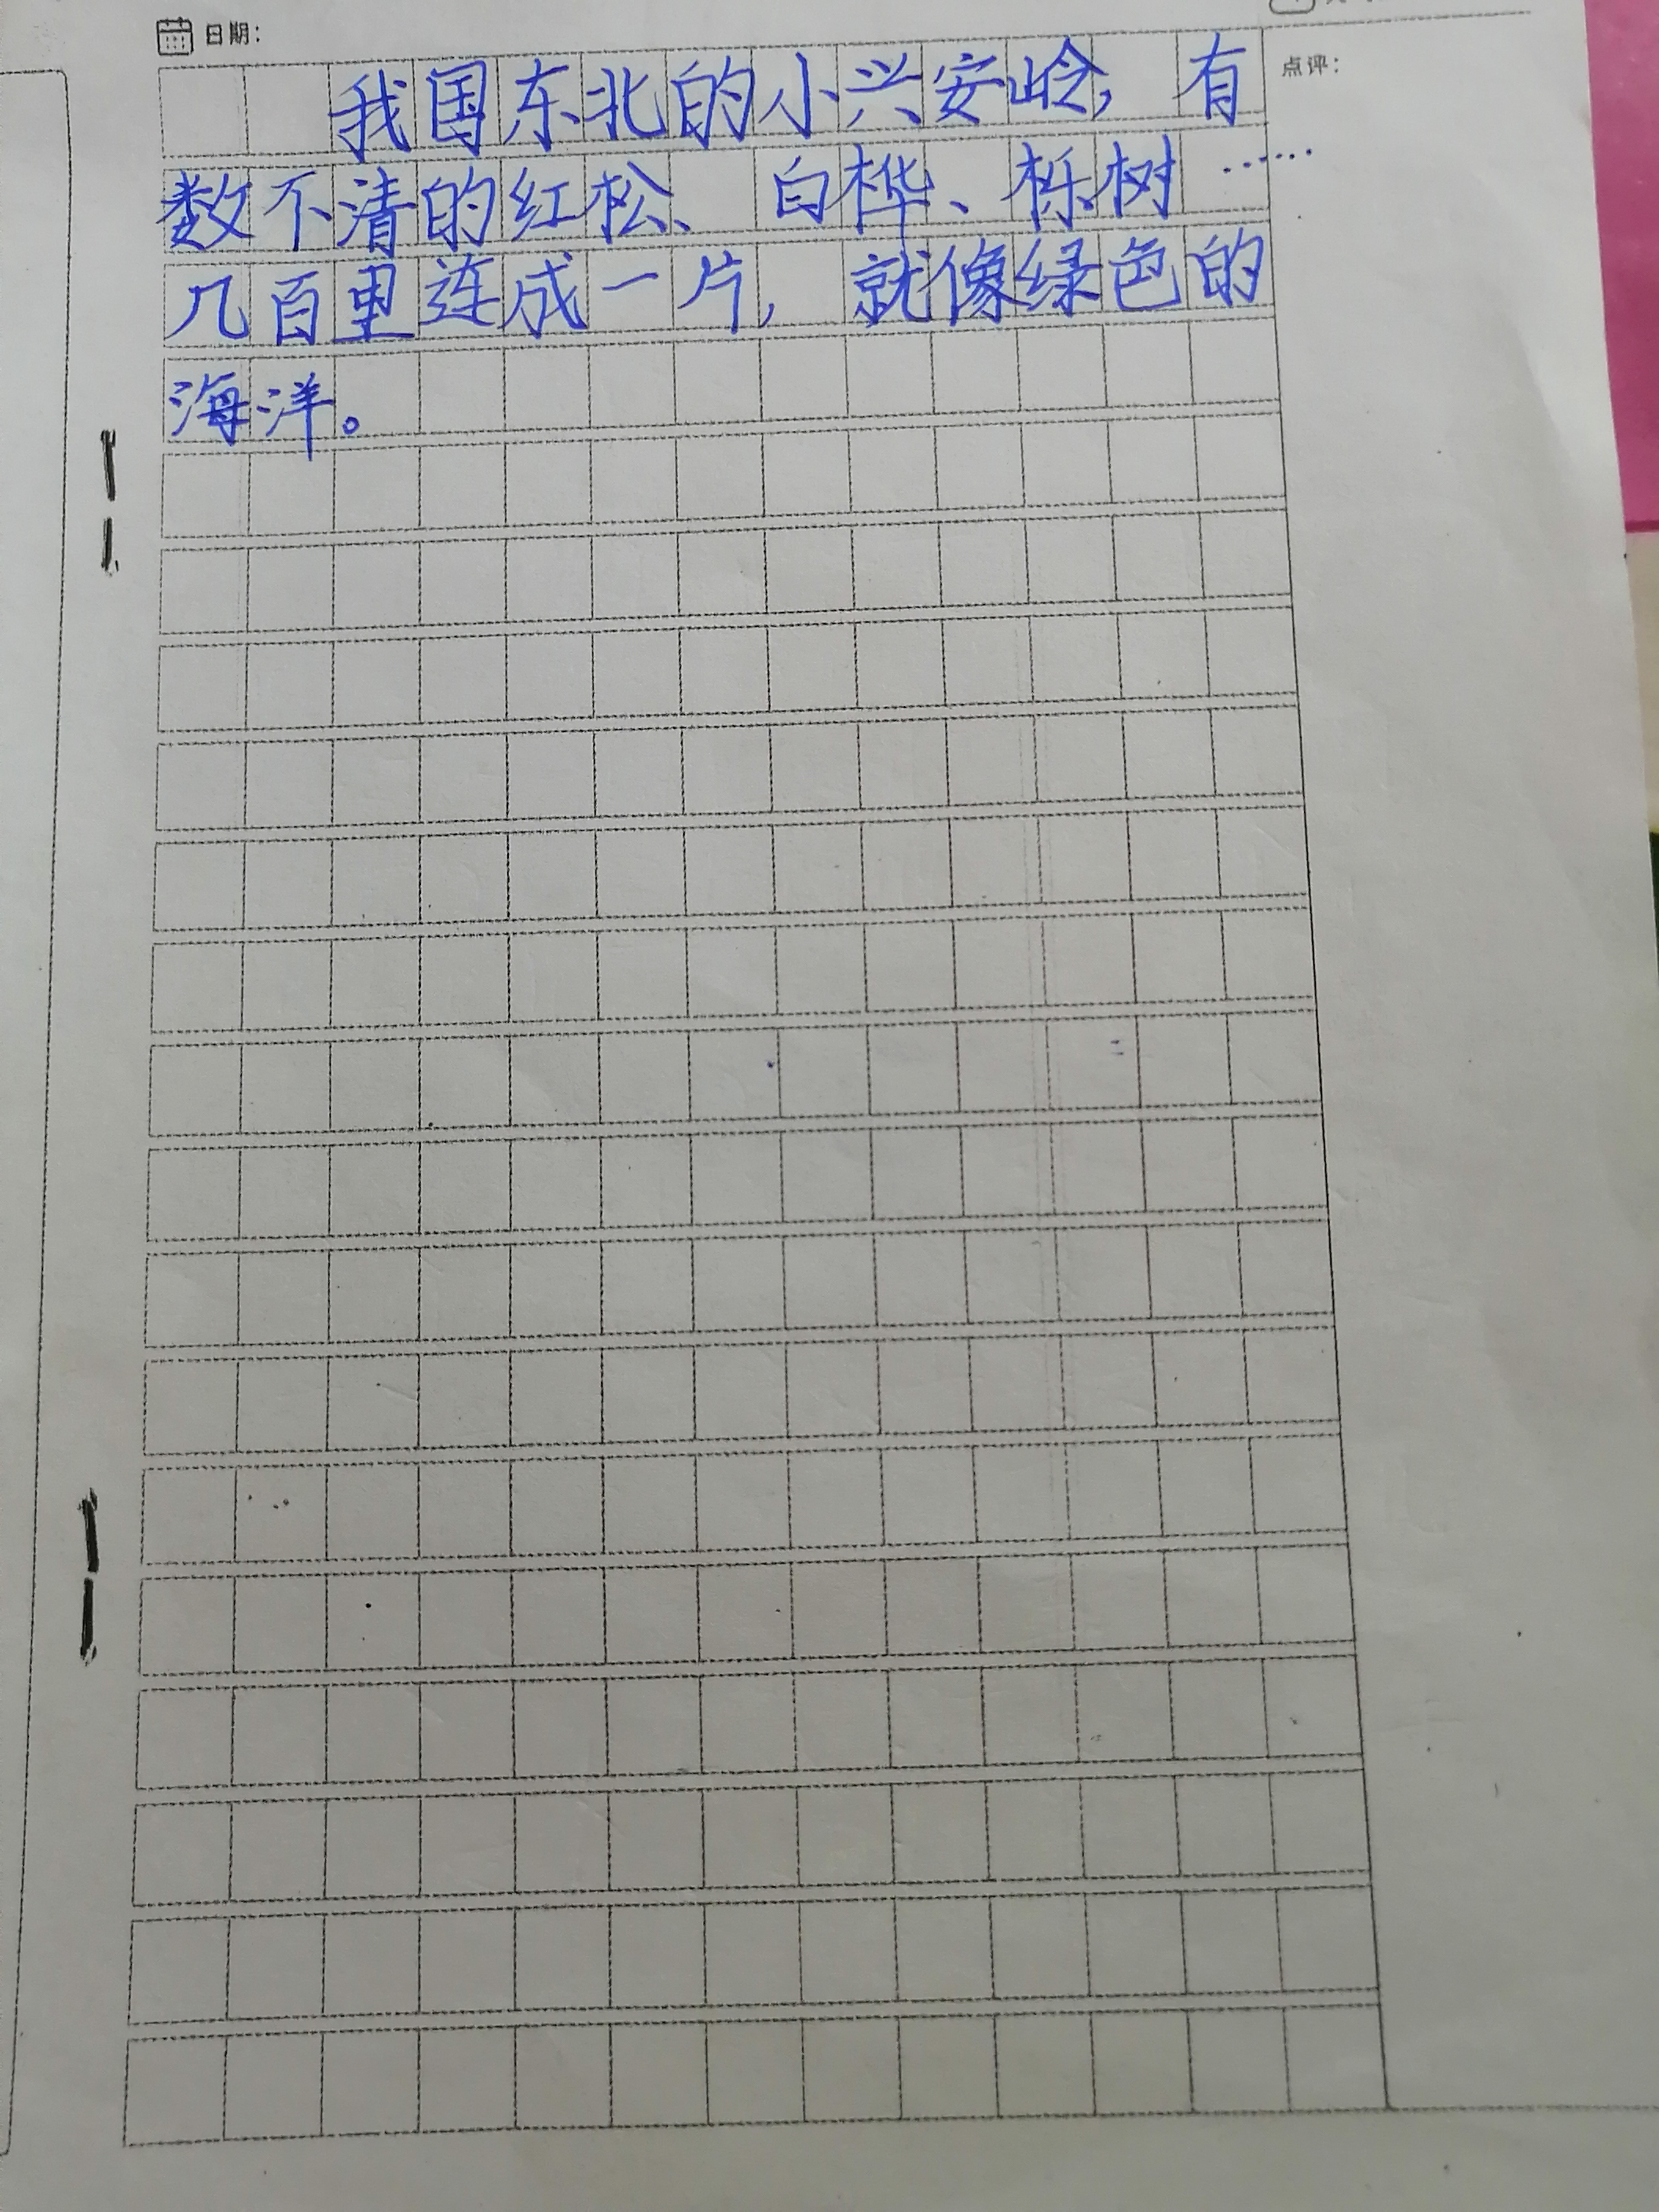 日期：
点评：
我国东北的小兴安岭，有
数不清的红松、白桦、栎树……
几百里连成一片，就像绿色的
海洋。